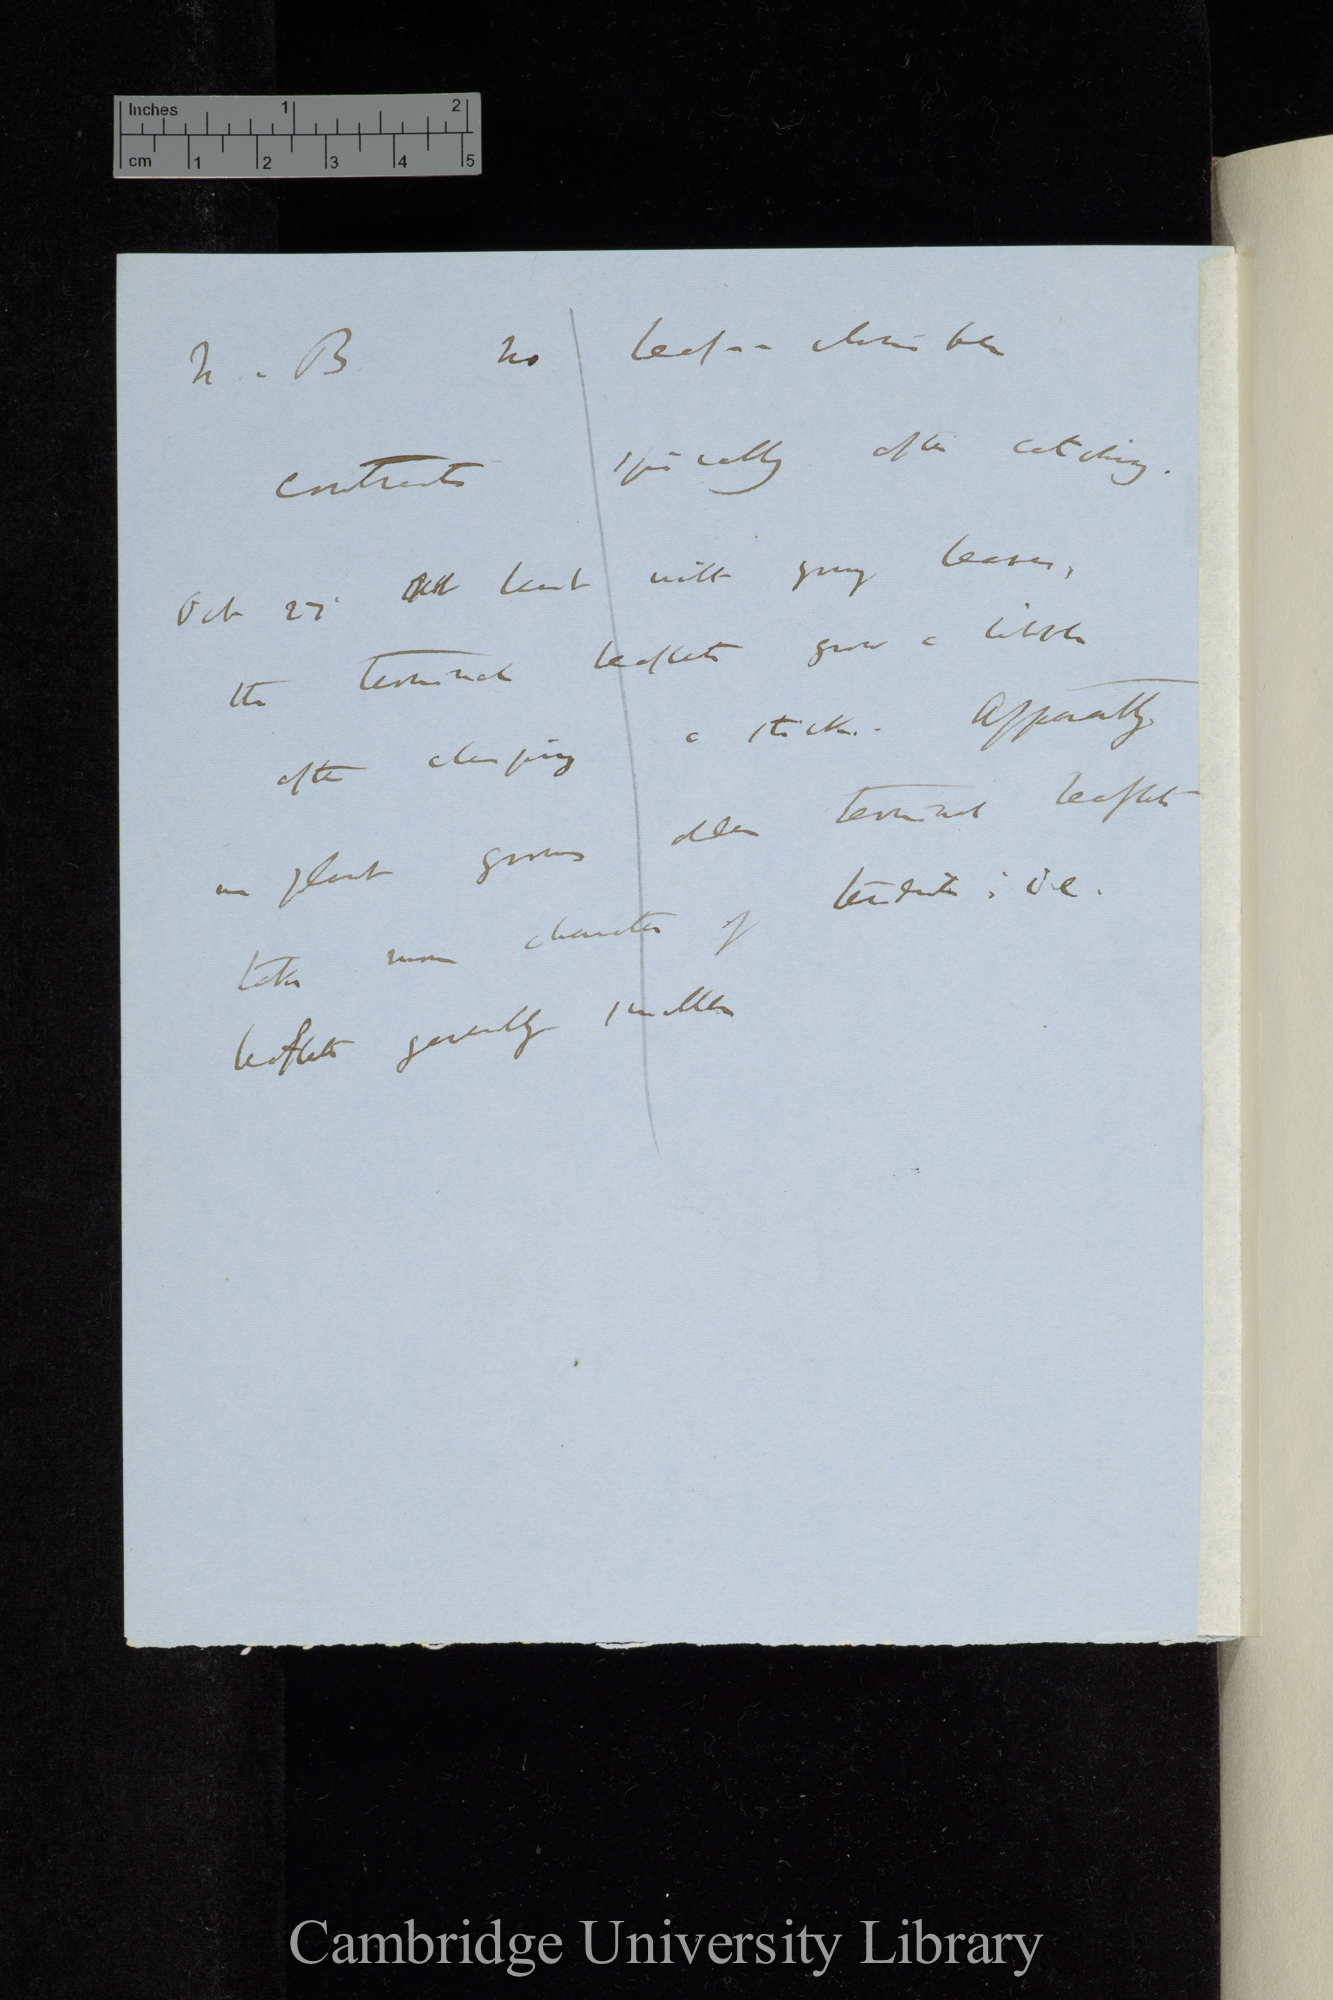 Inches 1 2
cm 1 2 3 4 5
N. B no leaf-climber
contracts spirally after catching.
Oct 27 least with young leaves,
the terminal leaflets grow a little
after clasping a stick.- Apparently
as plant grows older terminal leaflets
take more character of tendrils; i.e.
leaflets generally smaller
Cambridge University Library